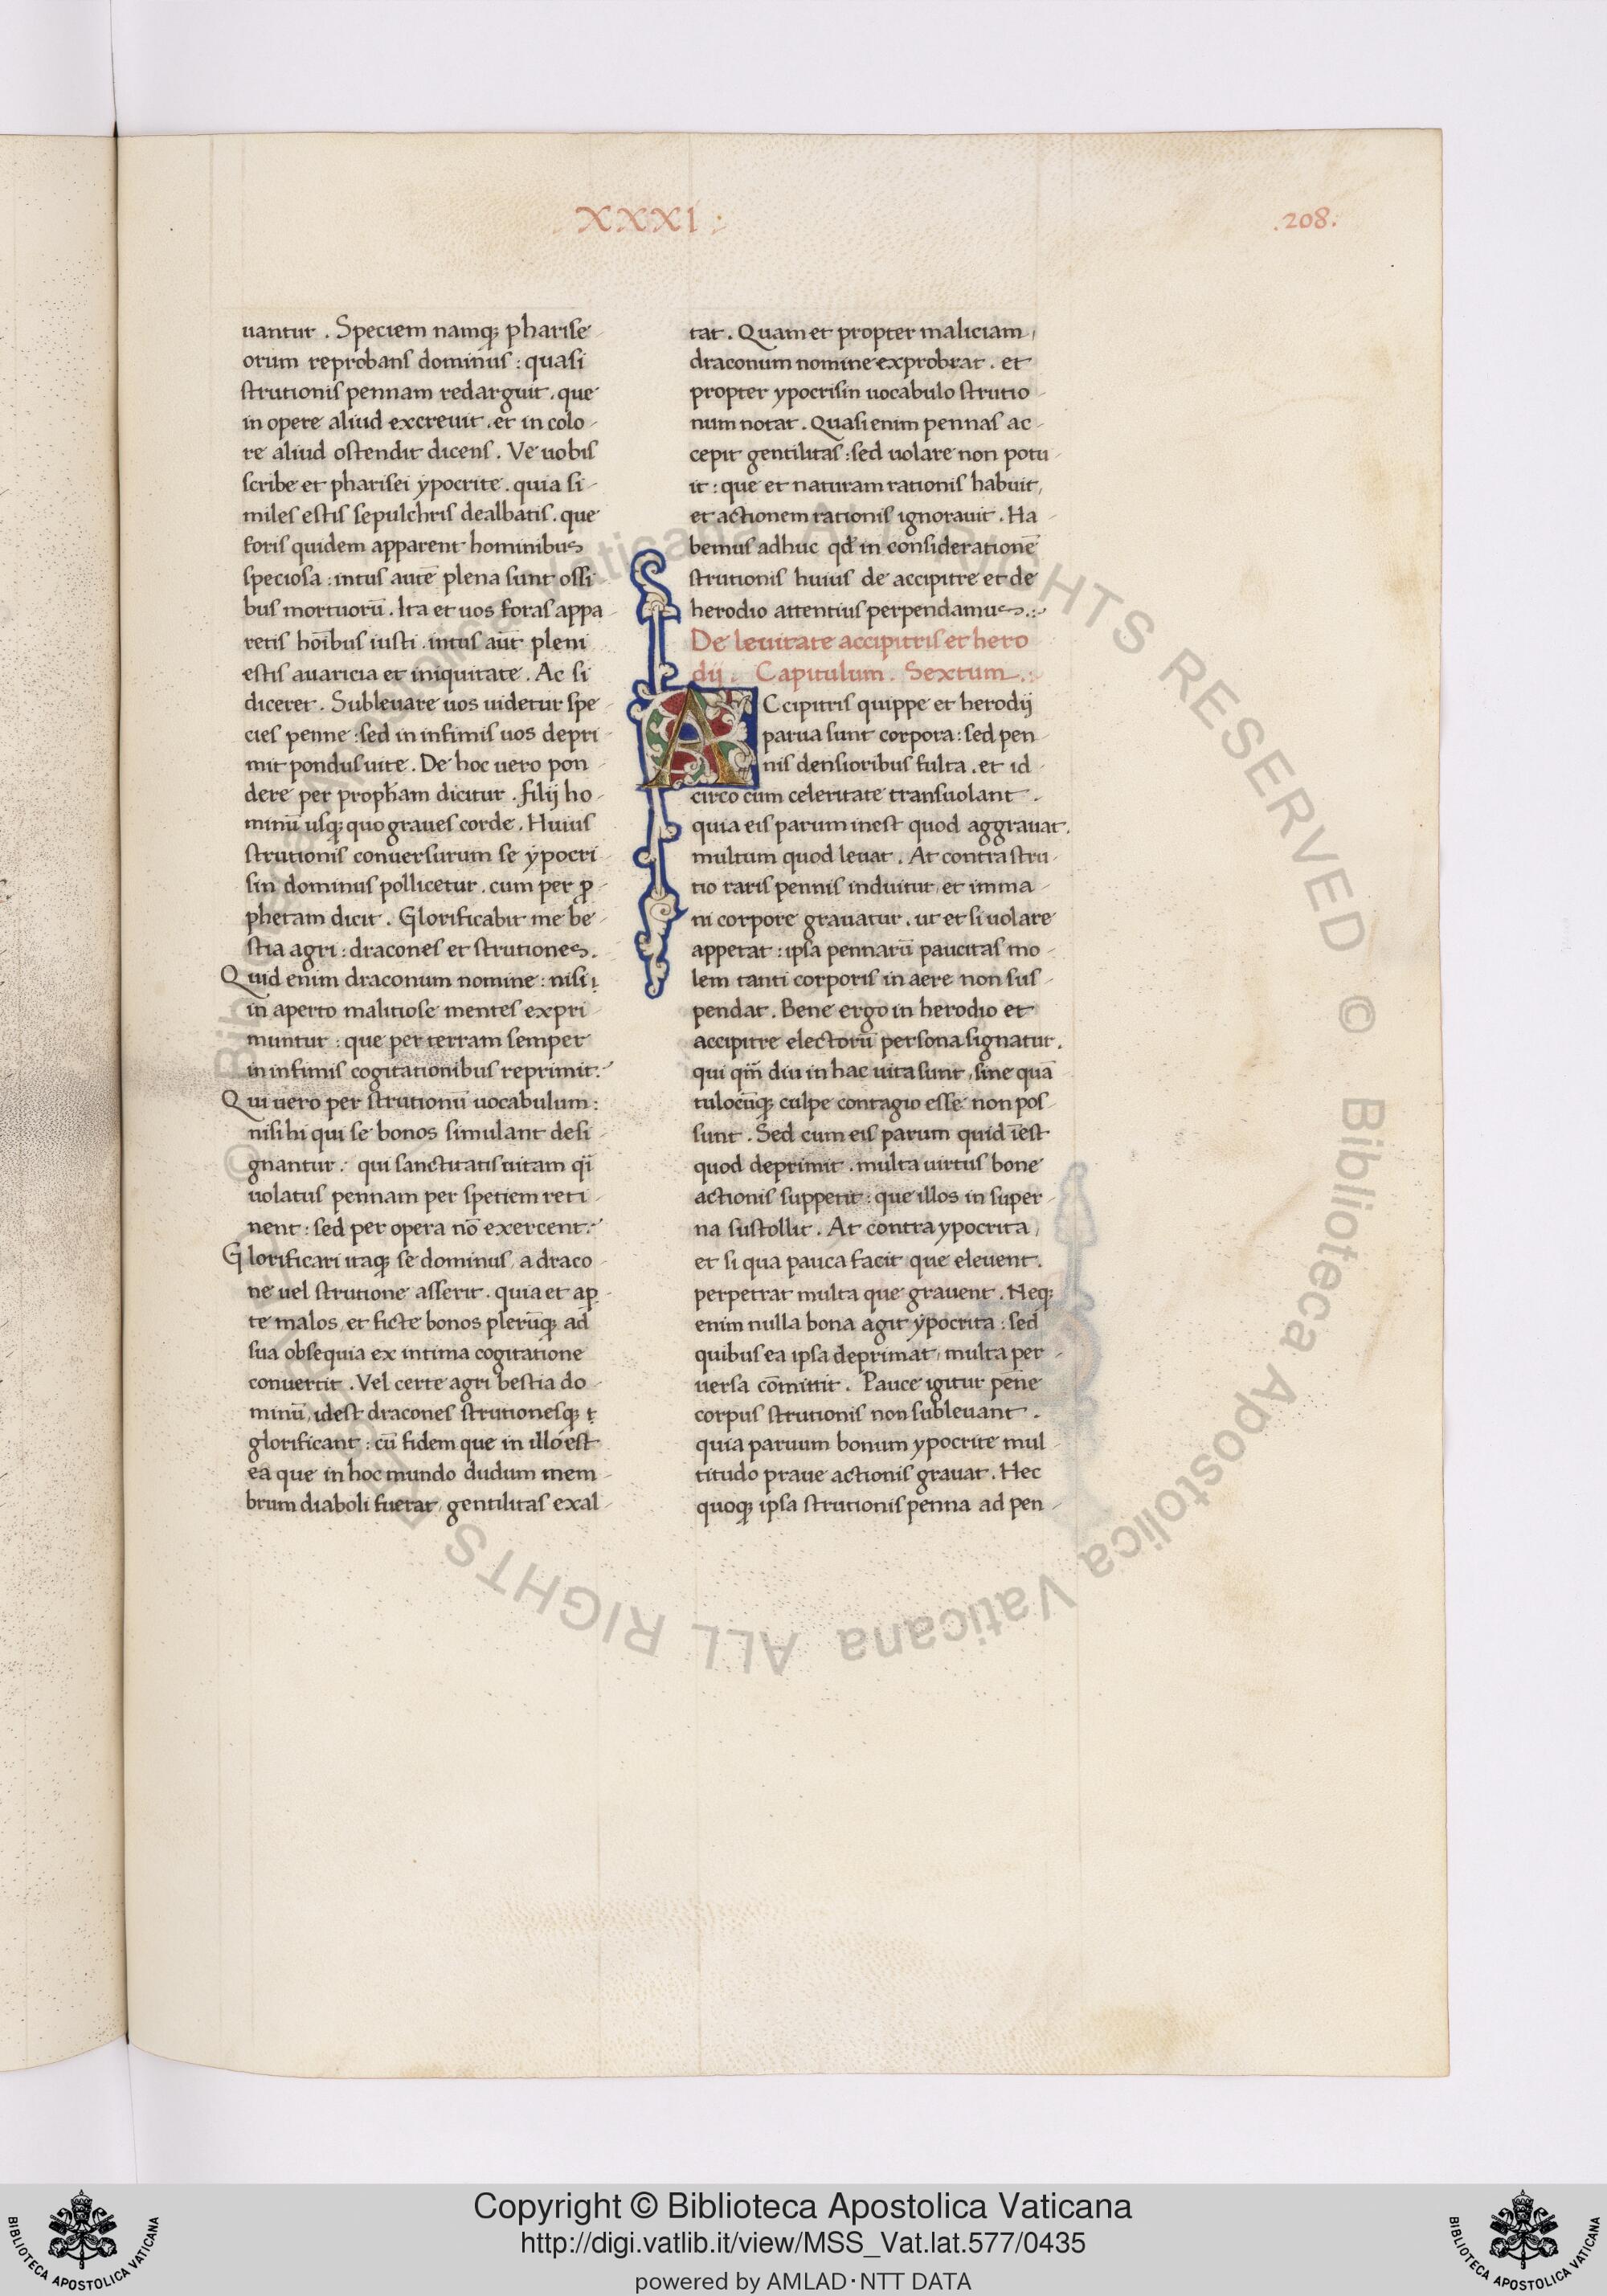 XXXI :
.208.
uantur . Speciem namq; pharise
orum reprobans dominus : quasi
strutionis pennam redarguit . que
in opere aliud excreuit . et in colo
re aliud ostendit dicens . Ve uobis
scribe et pharisei ypocrite . quia si
miles estis sepulchris dealbatis . que
foris quidem apparent hominibus
speciosa : intus autē plena sunt ossi
bus mortuorū . Ita et uos foras appa
retis hoībus iusti . intus aūt pleni
estis auaricia et iniquitate . Ac si
diceret . Subleuare uos uidetur spe
cies penne : sed in infimis uos depri
mit pondus uite . De hoc uero pon
dere per propħam dicitur . filij ho
minū usq; quo graues corde . Huius
strutionis conuersurum se ypocri
sin dominus pollicetur . cum per ꝓ
phetam dicit . Glorificabit me be
stia agri : dracones et strutiones .
Quid enim draconum nomine : nisi
in aperto malitiose mentes expri
muntur : que per terram semper
in infimis cogitationibus reprimit .
Qui uero per strutionū uocabulum :
nisi hi qui se bonos simulant desi
gnantur . qui sanctitatis uitam qͥ
uolatus pennam per spetiem reti
nent : sed per opera nō exercent .
Glorificari itaq; se dominus , a draco
ne uel strutione asserit . quia et aꝑ
te malos , et ficte bonos plerūq; ad
sua obsequia ex intima cogitatione
conuertit . Vel certe agri bestia do
minū , idest dracones strutionesq;
glorificant : cū fidem que in illo est
ea que in hoc mundo dudum mem
brum diaboli fuerat , gentilitas exal
tat . Quam et propter maliciam ,
draconum nomine exprobrat . et
propter ypocrisin uocabulo strutio
num notat . Quasi enim pennas ac
cepit gentilitas : sed uolare non potu
it : que et naturam rationis habuit ,
et actionem rationis ignorauit . Ha
bemus adhuc qđ in consideratione
strutionis huius de accipitre et de
herodio attentius perpendamus .
De leuitate accipitris et hero
dij . Capitulum . Sextum .
ACcipitris quippe et herodij
parua sunt corpora : sed pen
nis densioribus fulta . et id
circo cum celeritate transuolant .
quia eis parum inest quod aggrauat .
multum quod leuat . At contra stru
tio raris pennis induitur , et imma
ni corpore grauatur . ut et si uolare
appetat : ipsa pennarū paucitas mo
lem tanti corporis in aere non sus
pendat . Bene ergo in herodio et
accipitre electorū persona signatur .
qui qm̄ diu in hac uita sunt , sine quā
tulocūq; culpe contagio esse non pos
sunt . Sed cum eis parum quid īest
quod deprimit . multa uirtus bone
actionis suppetit : que illos in super
na sustollit . At contra ypocrita ,
et si qua pauca facit que eleuent .
perpetrat multa que grauent . Neq;
enim nulla bona agit ypocrita : sed
quibus ea ipsa deprimat , multa per
uersa cōmittit . Pauce igitur penne
corpus strutionis non subleuant .
quia paruum bonum ypocrite mul
titudo praue actionis grauat . Hec
quoq; ipsa strutionis penna ad pen
© Biblioteca Apostolica Vaticana ALL RIGHTS RESERVED © Biblioteca Apostolica Vaticana ALL RIGHTS RESERVED
BIBLIOTECA APOSTOLICA VATICANA
Copyright © Biblioteca Apostolica Vaticana
http://digi.vatlib.it/view/MSS_Vat.lat.577/0435
powered by AMLAD·NTT DATA
BIBLIOTECA APOSTOLICA VATICANA